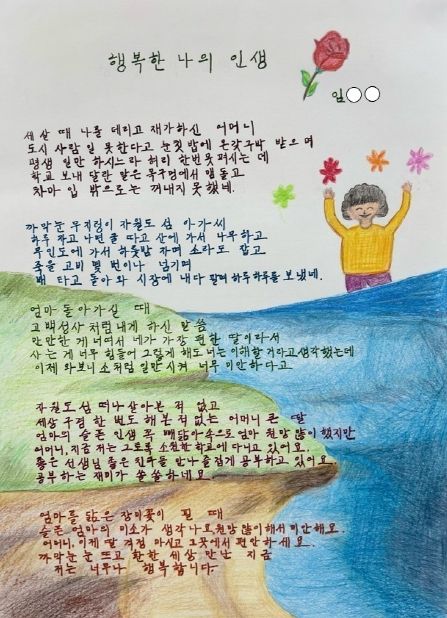 행복한 나의 인생
임○○
세살 때 나를 데리고 재가하신 어머니
도시 사람 일 못한다고 눈칫밥에 온갖구박 받으며
평생 일만 하시느라 허리 한번못펴시는 데
학교 보내 달란 말은 목구멍에서 맴돌고
차마 입 밖으로는 꺼내지 못했네.
까막눈 무지렁이 자월도 섬 아가씨
하루 자고 나면 굴 따고 산에 가서 나무하고
무인도에 가서 하룻밤 자며 소라도 잡고
죽을 고비 몇 번이나 넘기며
배 타고 돌아와 시장에 내다 팔며 하루하루를 보냈네.
엄마 돌아가실 때
고백성사처럼 내게 하신 말씀
만만한 게 너여서 네가 가장 편한 딸이라서
사는 게 너무 힘들어 그렇게 해도 너는 이해할거라고 생각했는데
이제 와보니 소처럼 일만시켜 너무 미안하다고
자월도 섬 떠나 살아본 적 없고
세상 구경 한 번도 해본 적 없는 어머니 큰 딸
엄마의 슬픈 인생 꼭 빼닮아 속으로 엄마 원망 많이 했지만
어머니, 지금 저는 그토록 소원한 학교에 다니고 있어요.
좋은 선생님 좋은 친구를 만나 즐겁게 공부하고 있어요.
공부하는 재미가 쏠쏠하네요.
엄마를 닮은 장미꽃이 필 때
슬픈 엄마의 미소가 생각나요 원망 많이해서 미안해요.
어머니, 이제 딸 걱정 마시고 그곳에서 편안하세요.
까막눈 뜨고 환한 세상 만난 지금
저는 너무나 행복합니다.